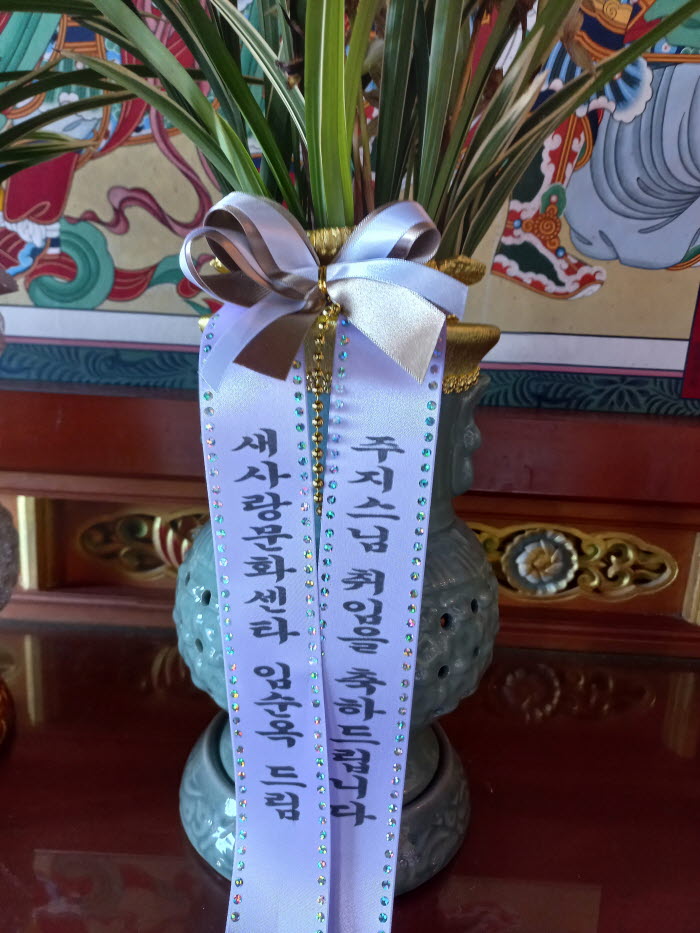 주지스님 취임을 축하드립니다
새사랑문화센타 임순옥 드림